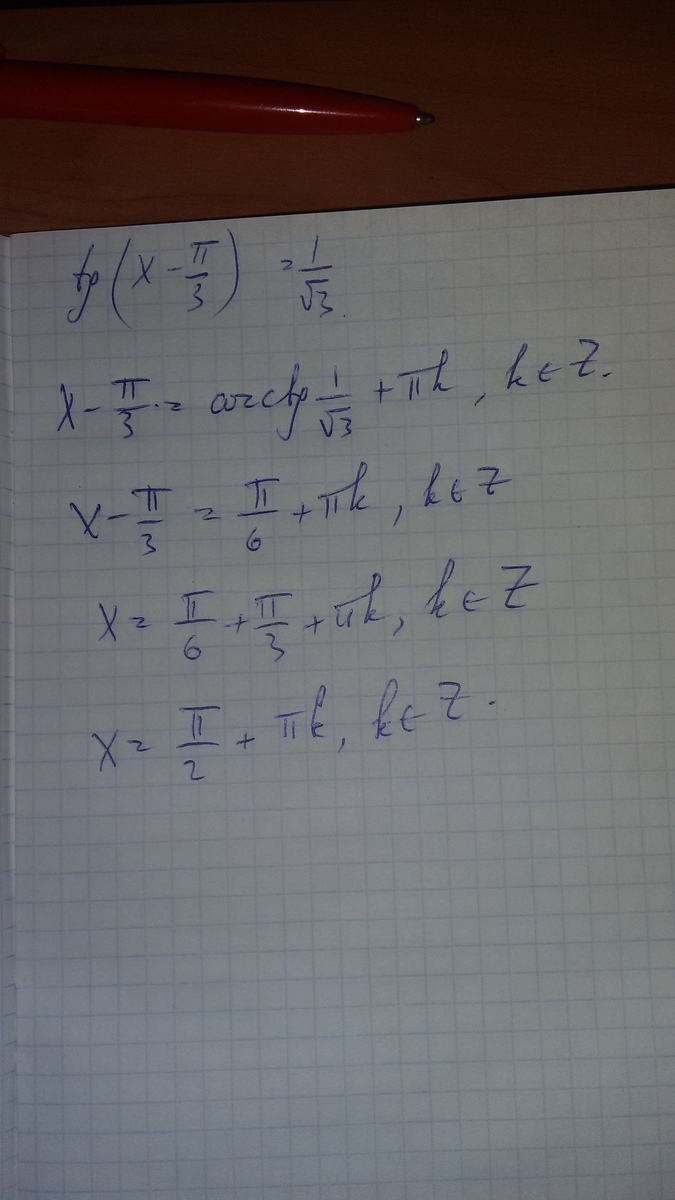 tg(x - π/3) = 1/√3.
x - π/3 = arctg 1/√3 + πk, k ∈ Z.
x - π/3 = π/6 + πk, k ∈ Z
x = π/6 + π/3 + πk, k ∈ Z
x = π/2 + πk, k ∈ Z.